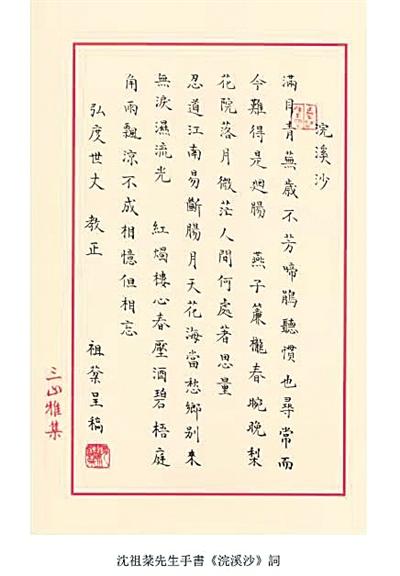 浣溪沙
滿目青蕪歲不芳啼鵑聽慣也尋常而
今難得是迴腸 燕子簾櫳春晼晚梨
花院落月微茫人間何處著思量
忍道江南易斷腸月天花海當愁鄉別來
無淚濕流光 紅燭樓心春壓酒碧梧庭
角雨飄涼不成相憶但相忘
弘度世丈 教正
祖棻呈稿
三山雅集
沈祖棻先生手書《浣溪沙》詞